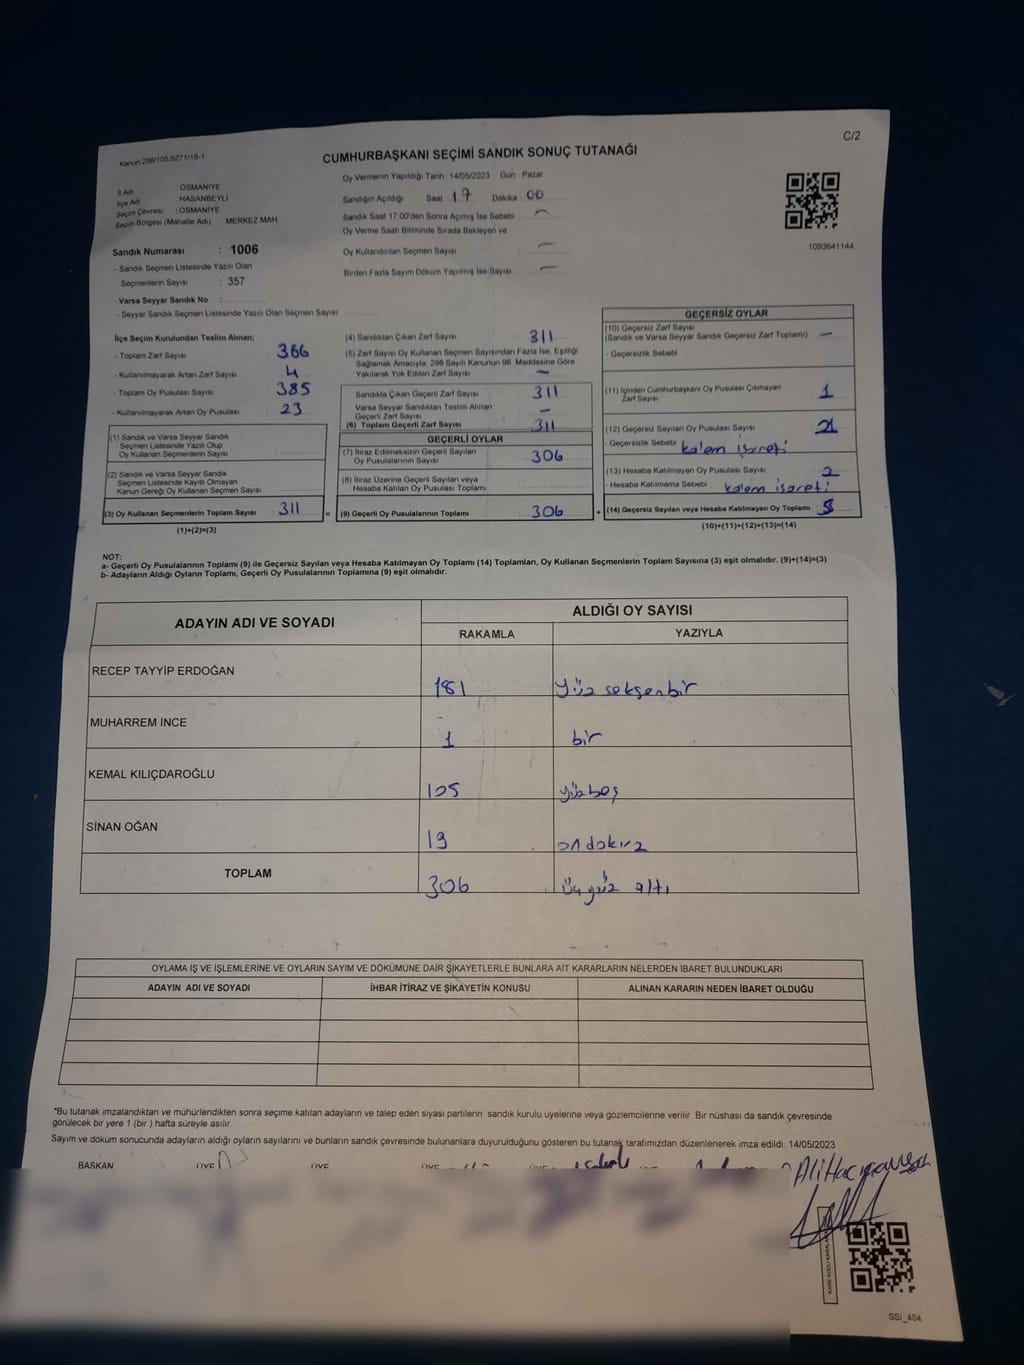 C/2
Kanun.298/105,6271/18-1
CUMHURBAŞKANI SEÇİMİ SANDIK SONUÇ TUTANAĞI
İl Adı : OSMANİYE
İlçe Adı : HASANBEYLİ
Seçim Çevresi : OSMANİYE
Seçim Bölgesi (Mahalle Adı) : MERKEZ MAH.
Sandık Numarası : 1006
- Sandık Seçmen Listesinde Yazılı Olan
Seçmenlerin Sayısı : 357
Varsa Seyyar Sandık No :
- Seyyar Sandık Seçmen Listesinde Yazılı Olan Seçmen Sayısı
Oy Vermenin Yapıldığı Tarih :14/05/2023 Gün : Pazar
Sandığın Açıldığı Saat 17 Dakika 00
Sandık Saat 17:00'den Sonra Açımış İse Sebebi : -
Oy Verme Saati Bitiminde Sırada Bekleyen ve
Oy Kullandırılan Seçmen Sayısı -
Birden Fazla Sayım Döküm Yapılmış İse Sayısı -
1093641144
İlçe Seçim Kurulundan Teslim Alınan;
- Toplam Zarf Sayısı 366
- Kullanılmayarak Artan Zarf Sayısı 4
- Toplam Oy Pusulası Sayısı 385
- Kullanılmayarak Artan Oy Pusulası 23
(1) Sandık ve Varsa Seyyar Sandık
Seçmen Listesinde Yazılı Olup
Oy Kullanan Seçmenlerin Sayısı
(2) Sandık ve Varsa Seyyar Sandık
Seçmen Listesinde Kayıtlı Olmayan
Kanun Gereği Oy Kullanan Seçmen Sayısı
(3) Oy Kullanan Seçmenlerin Toplam Sayısı 311 =
(1)+(2)=(3)
(4) Sandıktan Çıkan Zarf Sayısı 311
(5) Zarf Sayısı Oy Kullanan Seçmen Sayısından Fazla İse, Eşitliği
Sağlamak Amacıyla, 298 Sayılı Kanunun 98. Maddesine Göre
Yakılarak Yok Edilen Zarf Sayısı -
Sandıkta Çıkan Geçerli Zarf Sayısı 311
Varsa Seyyar Sandıktan Teslim Alınan
Geçerli Zarf Sayısı -
(6) Toplam Geçerli Zarf Sayısı 311
GEÇERLİ OYLAR
(7) İtiraz Edilmeksizin Geçerli Sayılan
Oy Pusulalarının Sayısı 306
(8) İtiraz Üzerine Geçerli Sayılan veya
Hesaba Katılan Oy Pusulaları Toplamı
(9) Geçerli Oy Pusulalarının Toplamı 306 +
GEÇERSİZ OYLAR
(10) Geçersiz Zarf Sayısı
(Sandık ve Varsa Seyyar Sandık Geçersiz Zarf Toplamı) -
- Geçersizlik Sebebi
(11) İçinden Cumhurbaşkanı Oy Pusulası Çıkmayan
Zarf Sayısı 1
(12) Geçersiz Sayılan Oy Pusulası Sayısı
- Geçersizlik Sebebi kalem işareti
(13) Hesaba Katılmayan Oy Pusulası Sayısı 2
- Hesaba Katılmama Sebebi : kalem işareti
(14) Geçersiz Sayılan veya Hesaba Katılmayan Oy Toplamı 5
(10)+(11)+(12)+(13)=(14)
NOT:
a- Geçerli Oy Pusulalarının Toplamı (9) ile Geçersiz Sayılan veya Hesaba Katılmayan Oy Toplamı (14) Toplamları, Oy Kullanan Seçmenlerin Toplam Sayısına (3) eşit olmalıdır. (9)+(14)=(3)
b- Adayların Aldığı Oyların Toplamı, Geçerli Oy Pusulalarının Toplamına (9) eşit olmalıdır.
ADAYIN ADI VE SOYADI ALDIĞI OY SAYISI
RAKAMLA YAZIYLA
RECEP TAYYİP ERDOĞAN 181 yüz seksenbir
MUHARREM İNCE 1 bir
KEMAL KILIÇDAROĞLU 105 yüzbeş
SİNAN OĞAN 19 ondokuz
TOPLAM 306 üçyüz altı
OYLAMA İŞ VE İŞLEMLERİNE VE OYLARIN SAYIM VE DÖKÜMÜNE DAİR ŞİKAYETLERLE BUNLARA AİT KARARLARIN NELERDEN İBARET BULUNDUKLARI
ADAYIN ADI VE SOYADI İHBAR İTİRAZ VE ŞİKAYETİN KONUSU ALINAN KARARIN NEDEN İBARET OLDUĞU
*Bu tutanak imzalandıktan ve mühürlendikten sonra seçime katılan adayların ve talep eden siyasi partilerin sandık kurulu üyelerine veya gözlemcilerine verilir. Bir nüshası da sandık çevresinde
görülecek bir yere 1 (bir ) hafta süreyle asılır.
Sayım ve döküm sonucunda adayların aldığı oyların sayılarını ve bunların sandık çevresinde bulunanlara duyurulduğunu gösteren bu tutanak tarafımızdan düzenlenerek imza edildi. 14/05/2023
BAŞKAN ÜYE ÜYE ÜYE ÜYE
SSİ_404